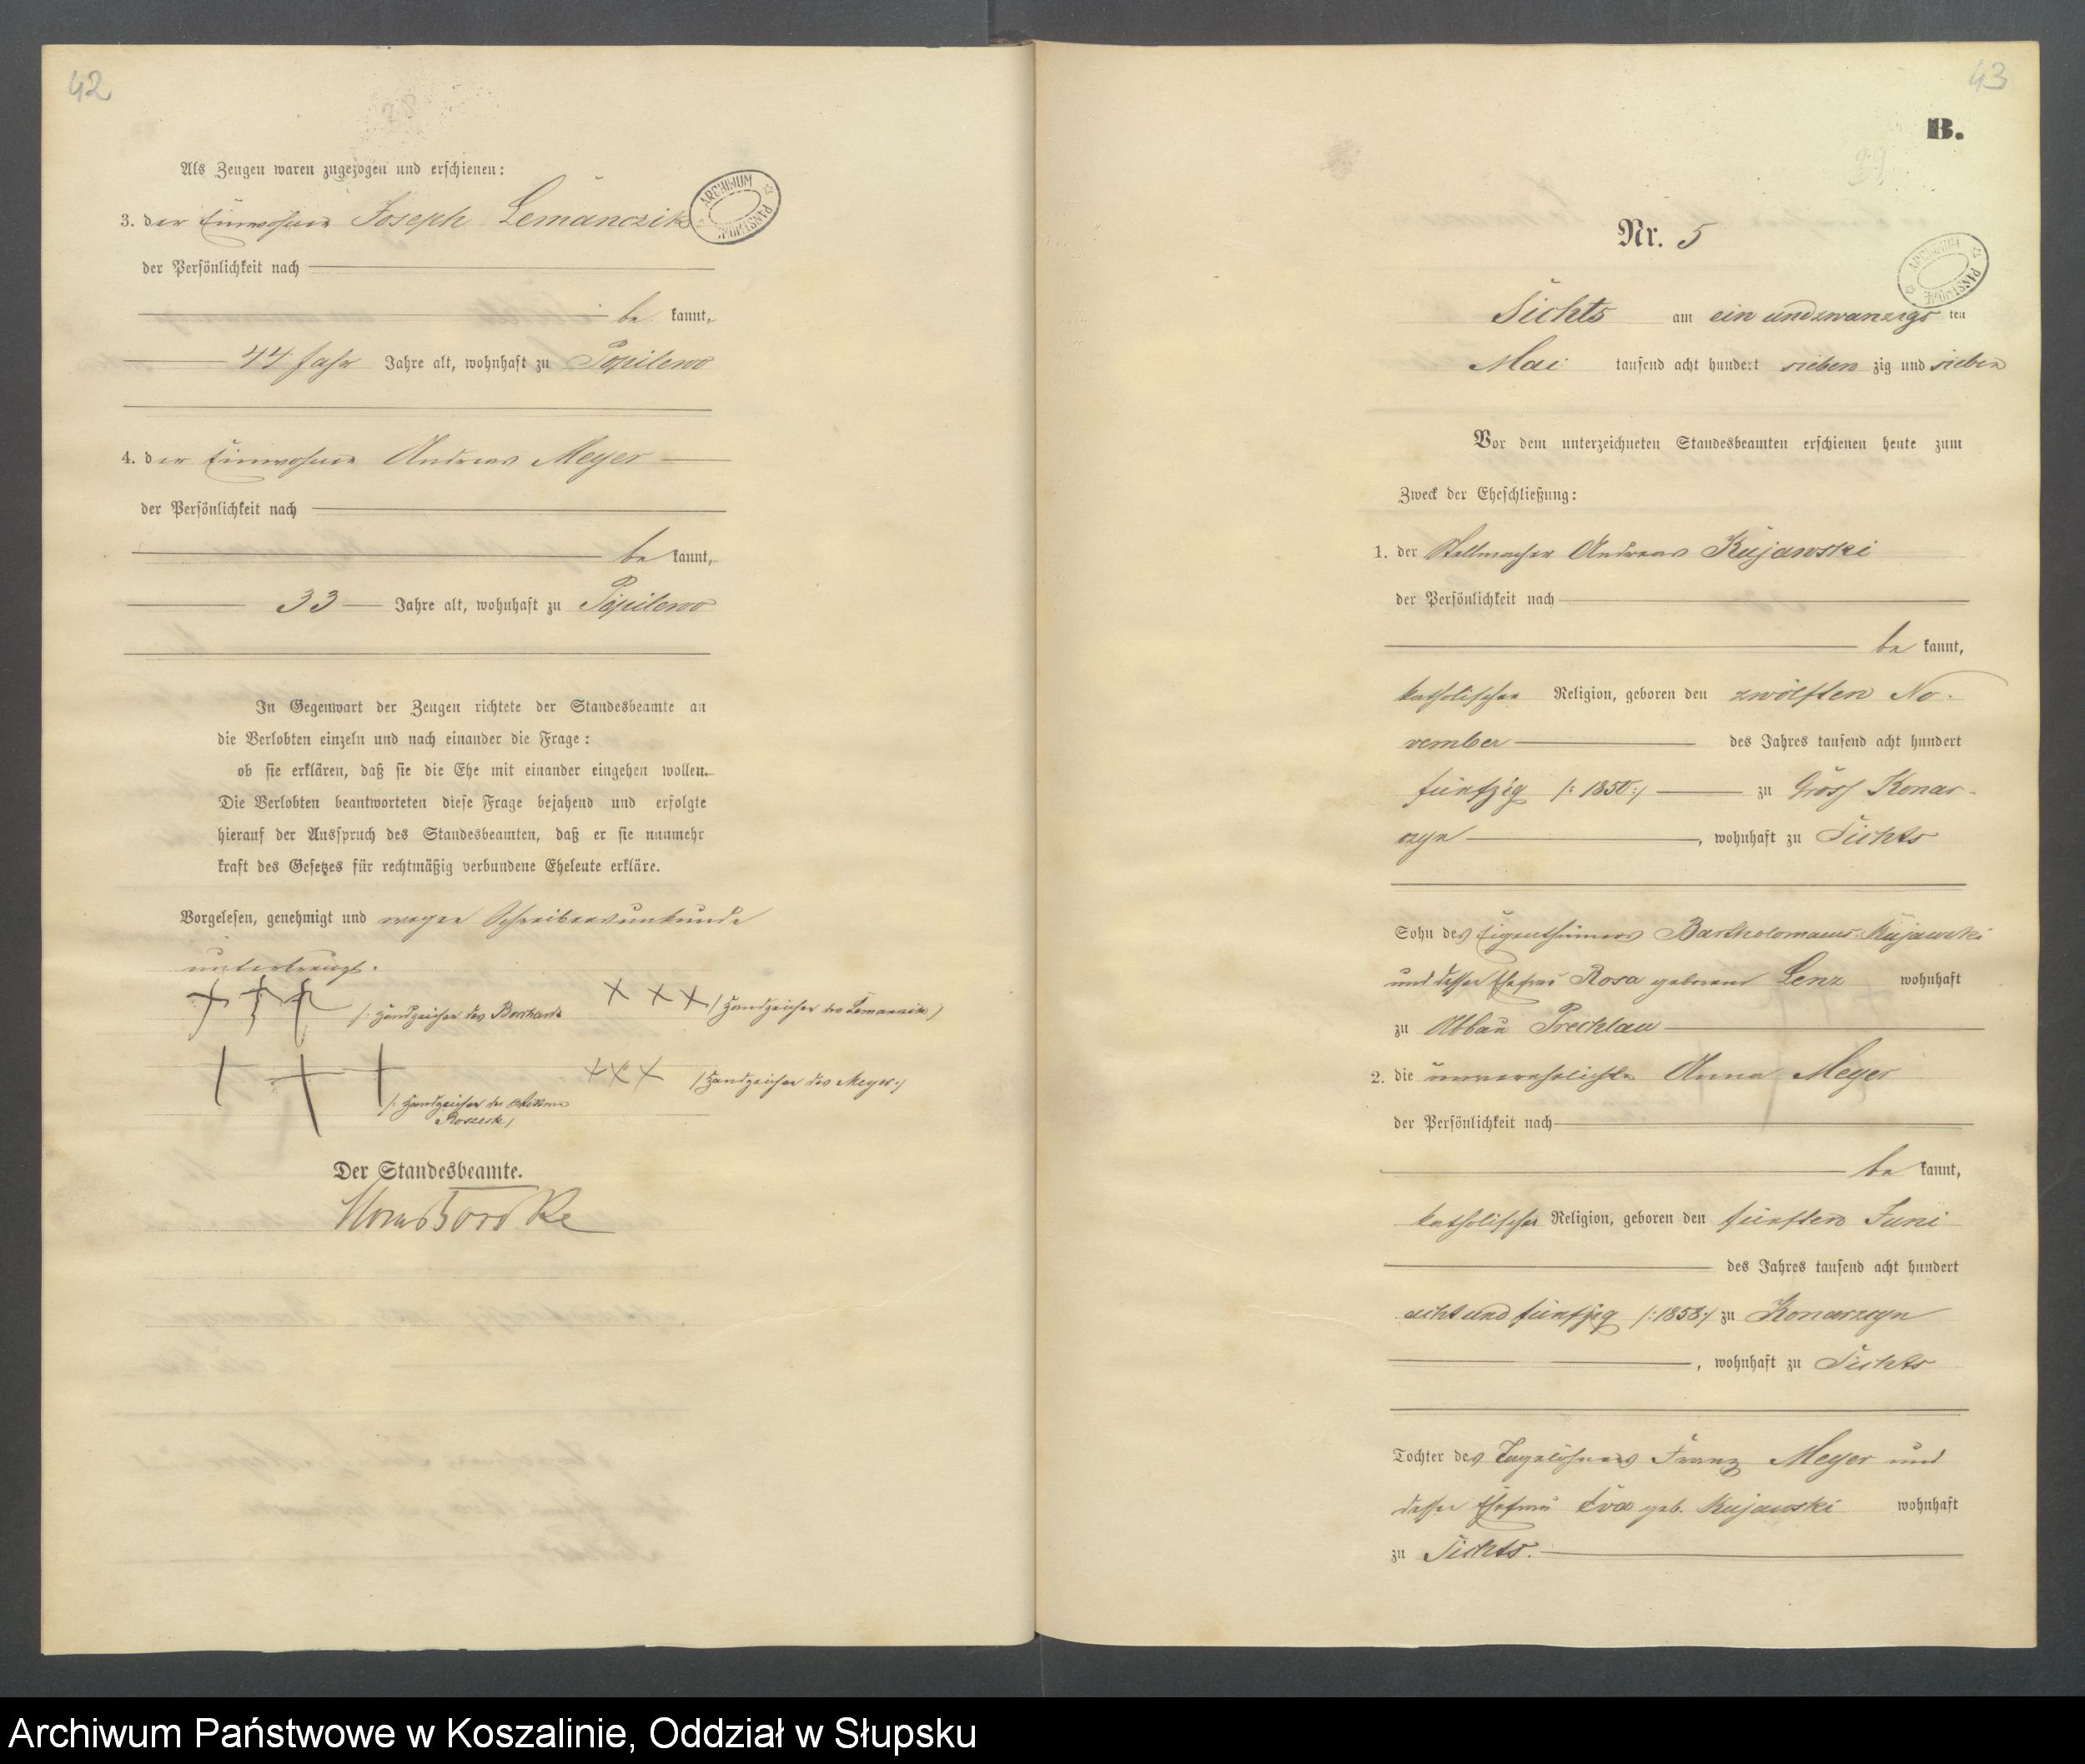 42
Als Zeugen waren zugezogen und erschienen:
3. der Einwohner Joseph Lemanczik
ARCHIWUM PAŃSTWOWE
der Persönlichkeit nach
be kannt,
44 Jahr Jahre alt, wohnhaft zu
4. der Einwohner Andreas Meyer
der Persönlichkeit nach
be kannt,
33 Jahre alt, wohnhaft zu
In Gegenwart der Zeugen richtete der Standesbeamte an
die Verlobten einzeln und nach einander die Frage:
ob sie erklären, daß sie die Ehe mit einander eingehen wollen.
Die Verlobten beantworteten diese Frage bejahend und erfolgte
hierauf der Ausspruch des Standesbeamten, daß er sie nunmehr
kraft des Gesetzes für rechtmäßig verbundene Eheleute erkläre.
Vorgelesen, genehmigt und wegen Schreibensunkunde
unterkreuzt.
/: Handzeichen des XXX /: Handzeichen des Lemanczik /
/: Handzeichen der XXX /: Handzeichen des Meyer :/
Der Standesbeamte.
43
B.
Nr. 5
ARCHIWUM PAŃSTWOWE
Sichts am ein und zwanzigs ten
Mai tausend acht hundert sieben zig und sieben
Vor dem unterzeichneten Standesbeamten erschienen heute zum
Zweck der Eheschließung:
1. der Stellmacher Andreas Kujawski
der Persönlichkeit nach
be kannt,
katholischer Religion, geboren den zwölften No-
vember des Jahres tausend acht hundert
fünfzig /: 1850 :/ zu Gross Konar-
czyn, wohnhaft zu Sichts
Sohn des Eigenthümers Bartholomaeus Kujawski
und dessen Ehefrau Rosa geborene Lenz wohnhaft
zu Abbau Prechlau
2. die unverehelichte Anna Meyer
der Persönlichkeit nach
be kannt,
katholischer Religion, geboren den fünften Juni
des Jahres tausend acht hundert
acht und fünfzig /: 1858 :/ zu Konarczyn
, wohnhaft zu Sichts
Tochter des Tagelöhners Franz Meyer und
dessen Ehefrau Eva geb. Kujawski wohnhaft
zu Sichts.
Archiwum Państwowe w Koszalinie, Oddział w Słupsku